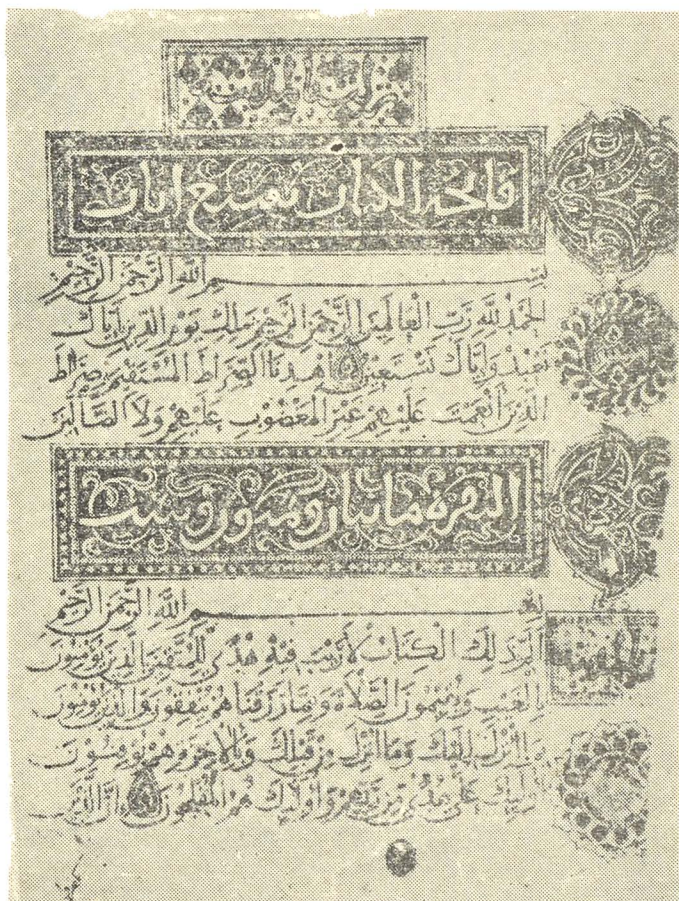 فاتحة الكتاب سبع ايات
بِسْمِ اللَّهِ الرَّحْمَنِ الرَّحِيمِ
الْحَمْدُ لِلَّهِ رَبِّ الْعَالَمِينَ الرَّحْمَنِ الرَّحِيمِ مَلِكِ يَوْمِ الدِّينِ اِيَّاكَ
نَعْبُدُ وَاِيَّاكَ نَسْتَعِينُ اهْدِنَا الصِّرَاطَ الْمُسْتَقِيمَ صِرَاطَ
الَّذِينَ اَنْعَمْتَ عَلَيْهِمْ غَيْرِ الْمَغْضُوبِ عَلَيْهِمْ وَلَا الضَّالِّينَ
البقره مايتان وثمنون وست
بِسْمِ اللَّهِ الرَّحْمَنِ الرَّحِيمِ
الم ذَلِكَ الْكِتَابُ لَا رَيْبَ فِيهِ هُدًى لِلْمُتَّقِينَ الَّذِينَ يُؤْمِنُونَ
بِالْغَيْبِ وَيُقِيمُونَ الصَّلَاةَ وَمِمَّا رَزَقْنَاهُمْ يُنْفِقُونَ وَالَّذِينَ يُؤْمِنُونَ
بِمَا اُنْزِلَ اِلَيْكَ وَمَا اُنْزِلَ مِنْ قَبْلِكَ وَبِالْاخِرَةِ هُمْ يُوقِنُونَ
اُولَيِكَ عَلَى هُدًى مِنْ رَبِّهِمْ وَاُولَيِكَ هُمُ الْمُفْلِحُونَ اِنَّ الَّذِينَ